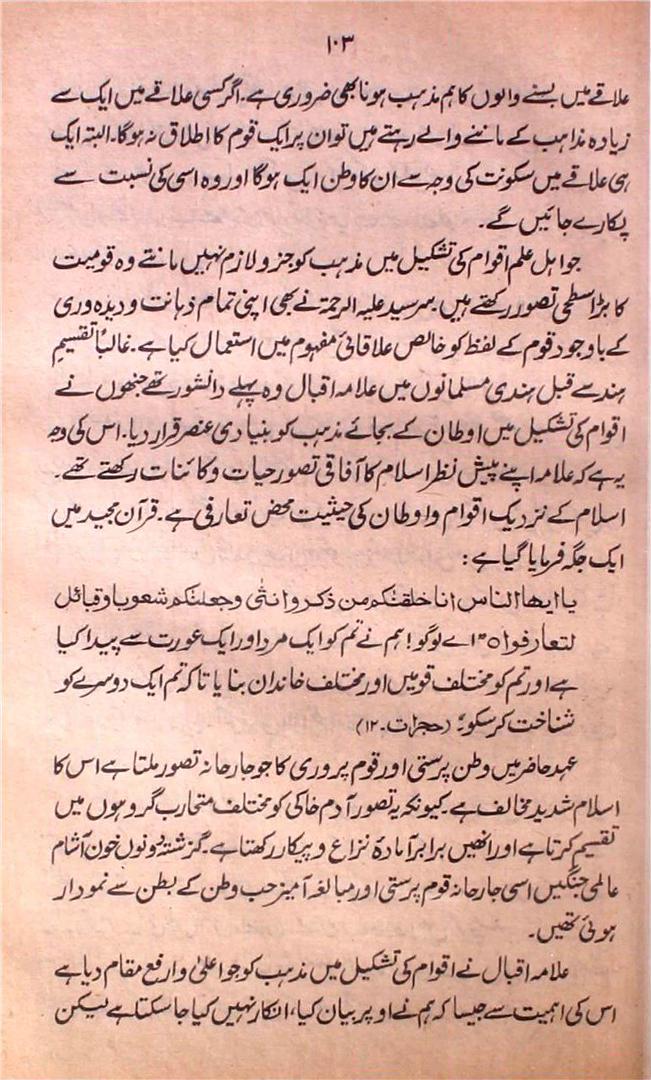 ۱۰۳
علاقے میں بسنے والوں کا ہم مذہب ہونا بھی ضروری ہے۔ اگر کسی علاقے میں ایک سے
زیادہ مذاہب کے ماننے والے رہتے ہیں تو ان پر ایک قوم کا اطلاق نہ ہوگا۔ البتہ ایک
ہی علاقے میں سکونت کی وجہ سے ان کا وطن ایک ہوگا اور وہ اسی کی نسبت سے
پکارے جائیں گے۔
جو اہل علم اقوام کی تشکیل میں مذہب کو جزو لازم نہیں مانتے وہ قومیت
کا بڑا سطحی تصور رکھتے ہیں۔ سرسید علیہ الرحمۃ نے بھی اپنی تمام ذہانت و دیدہ وری
کے باوجود قوم کے لفظ کو خالص علاقائی مفہوم میں استعمال کیا ہے۔ غالباً تقسیمِ
ہند سے قبل ہندی مسلمانوں میں علامہ اقبال وہ پہلے دانشور تھے جنھوں نے
اقوام کی تشکیل میں اوطان کے بجائے مذہب کو بنیادی عنصر قرار دیا۔ اس کی وجہ
یہ ہے کہ علامہ اپنے پیش نظر اسلام کا آفاقی تصور حیات و کائنات رکھتے تھے۔
اسلام کے نزدیک اقوام و اوطان کی حیثیت محض تعارفی ہے۔ قرآن مجید میں
ایک جگہ فرمایا گیا ہے:
یا ایھا الناس انا خلقنٰکم من ذکر وانثٰی وجعلنٰکم شعوبا وقبائل
لتعارفوا ہ ” اے لوگو! ہم نے تم کو ایک مرد اور ایک عورت سے پیدا کیا
ہے اور تم کو مختلف قومیں اور مختلف خاندان بنایا تاکہ تم ایک دوسرے کو
شناخت کر سکو۔“ (حجرات۔ ۱۲)
عہد حاضر میں وطن پرستی اور قوم پروری کا جو جارحانہ تصور ملتا ہے اس کا
اسلام شدید مخالف ہے۔ کیونکہ یہ تصور آدم خاکی کو مختلف متحارب گروہوں میں
تقسیم کرتا ہے اور انھیں برابر آمادۂ نزاع و پیکار رکھتا ہے۔ گزشتہ دونوں خون آشام
عالمی جنگیں اسی جارحانہ قوم پرستی اور مبالغہ آمیز حب وطن کے بطن سے نمودار
ہوئی تھیں۔
علامہ اقبال نے اقوام کی تشکیل میں مذہب کو جو اعلیٰ و ارفع مقام دیا ہے
اس کی اہمیت سے جیسا کہ ہم نے اوپر بیان کیا، انکار نہیں کیا جا سکتا ہے لیکن